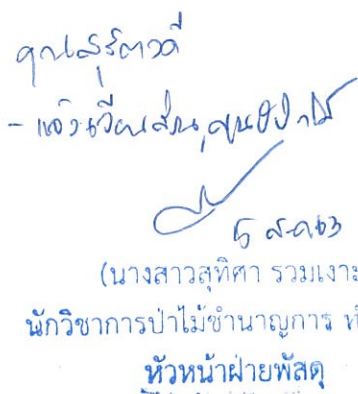 คุณสุรีตวดี
- แจ้งเวียนส่วน, ศูนย์ป่าไม้
5 ส.ค. 63
(นางสาวสุทิศา รวมเงาะ
นักวิชาการป่าไม้ชำนาญการ
หัวหน้าฝ่ายพัสดุ